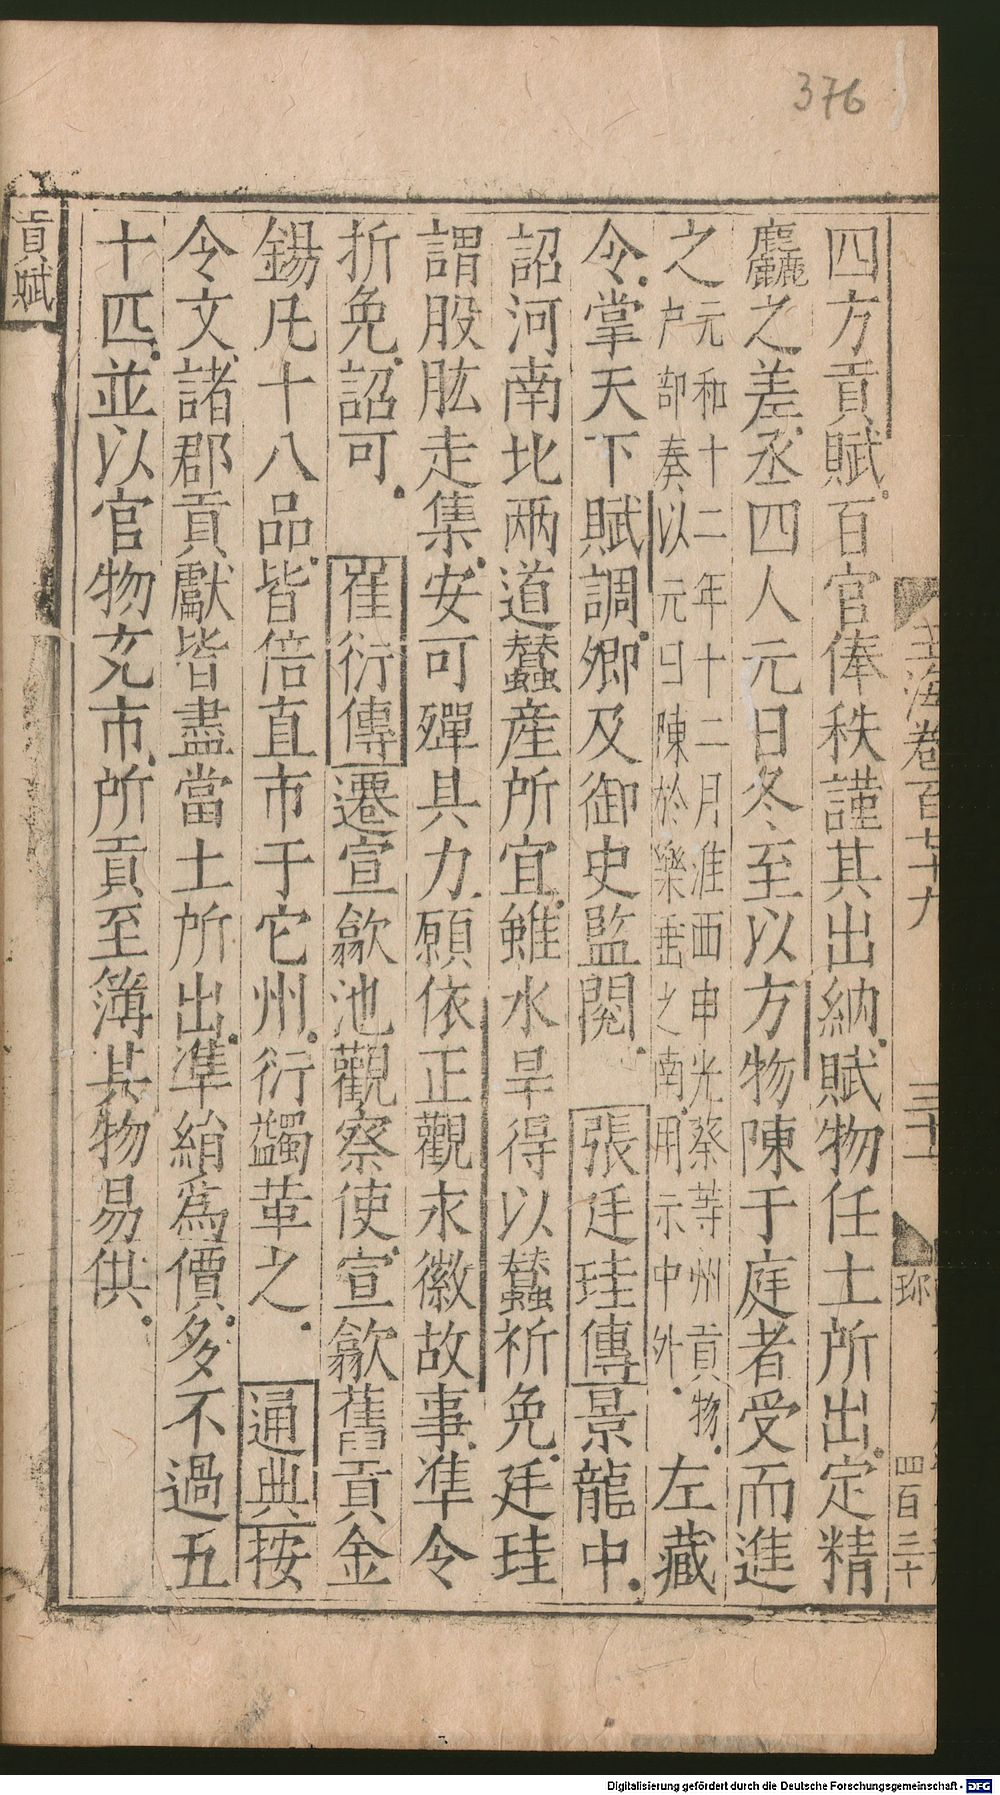 376
玉海卷百七十九
三十
珎
四百三十
四方貢賦百官俸秩謹其出納賦物任土所出定精
麤之差丞四人元日冬至以方物陳于庭者受而進
之元和十二年十二月淮西申光蔡等州貢物
户部奏以元日陳於樂縣之南用示中外左藏
令掌天下賦調卿及御史監閱 張廷珪傳景龍中
詔河南北两道蠶産所宜雖水旱得以蠶祈免廷珪
謂股肱走集安可殫其力願依正觀永徽故事準令
折免詔可 崔衍傳遷宣歙池觀察使宣歙舊貢金
錫凡十八品皆倍直市于它州衍蠲革之 通典按
令文諸郡貢獻皆盡當土所出準絹爲價多不過五
十匹並以官物充市所貢至簿其物易供
貢賦
Digitalisierung gefördert durch die Deutsche Forschungsgemeinschaft - DFG